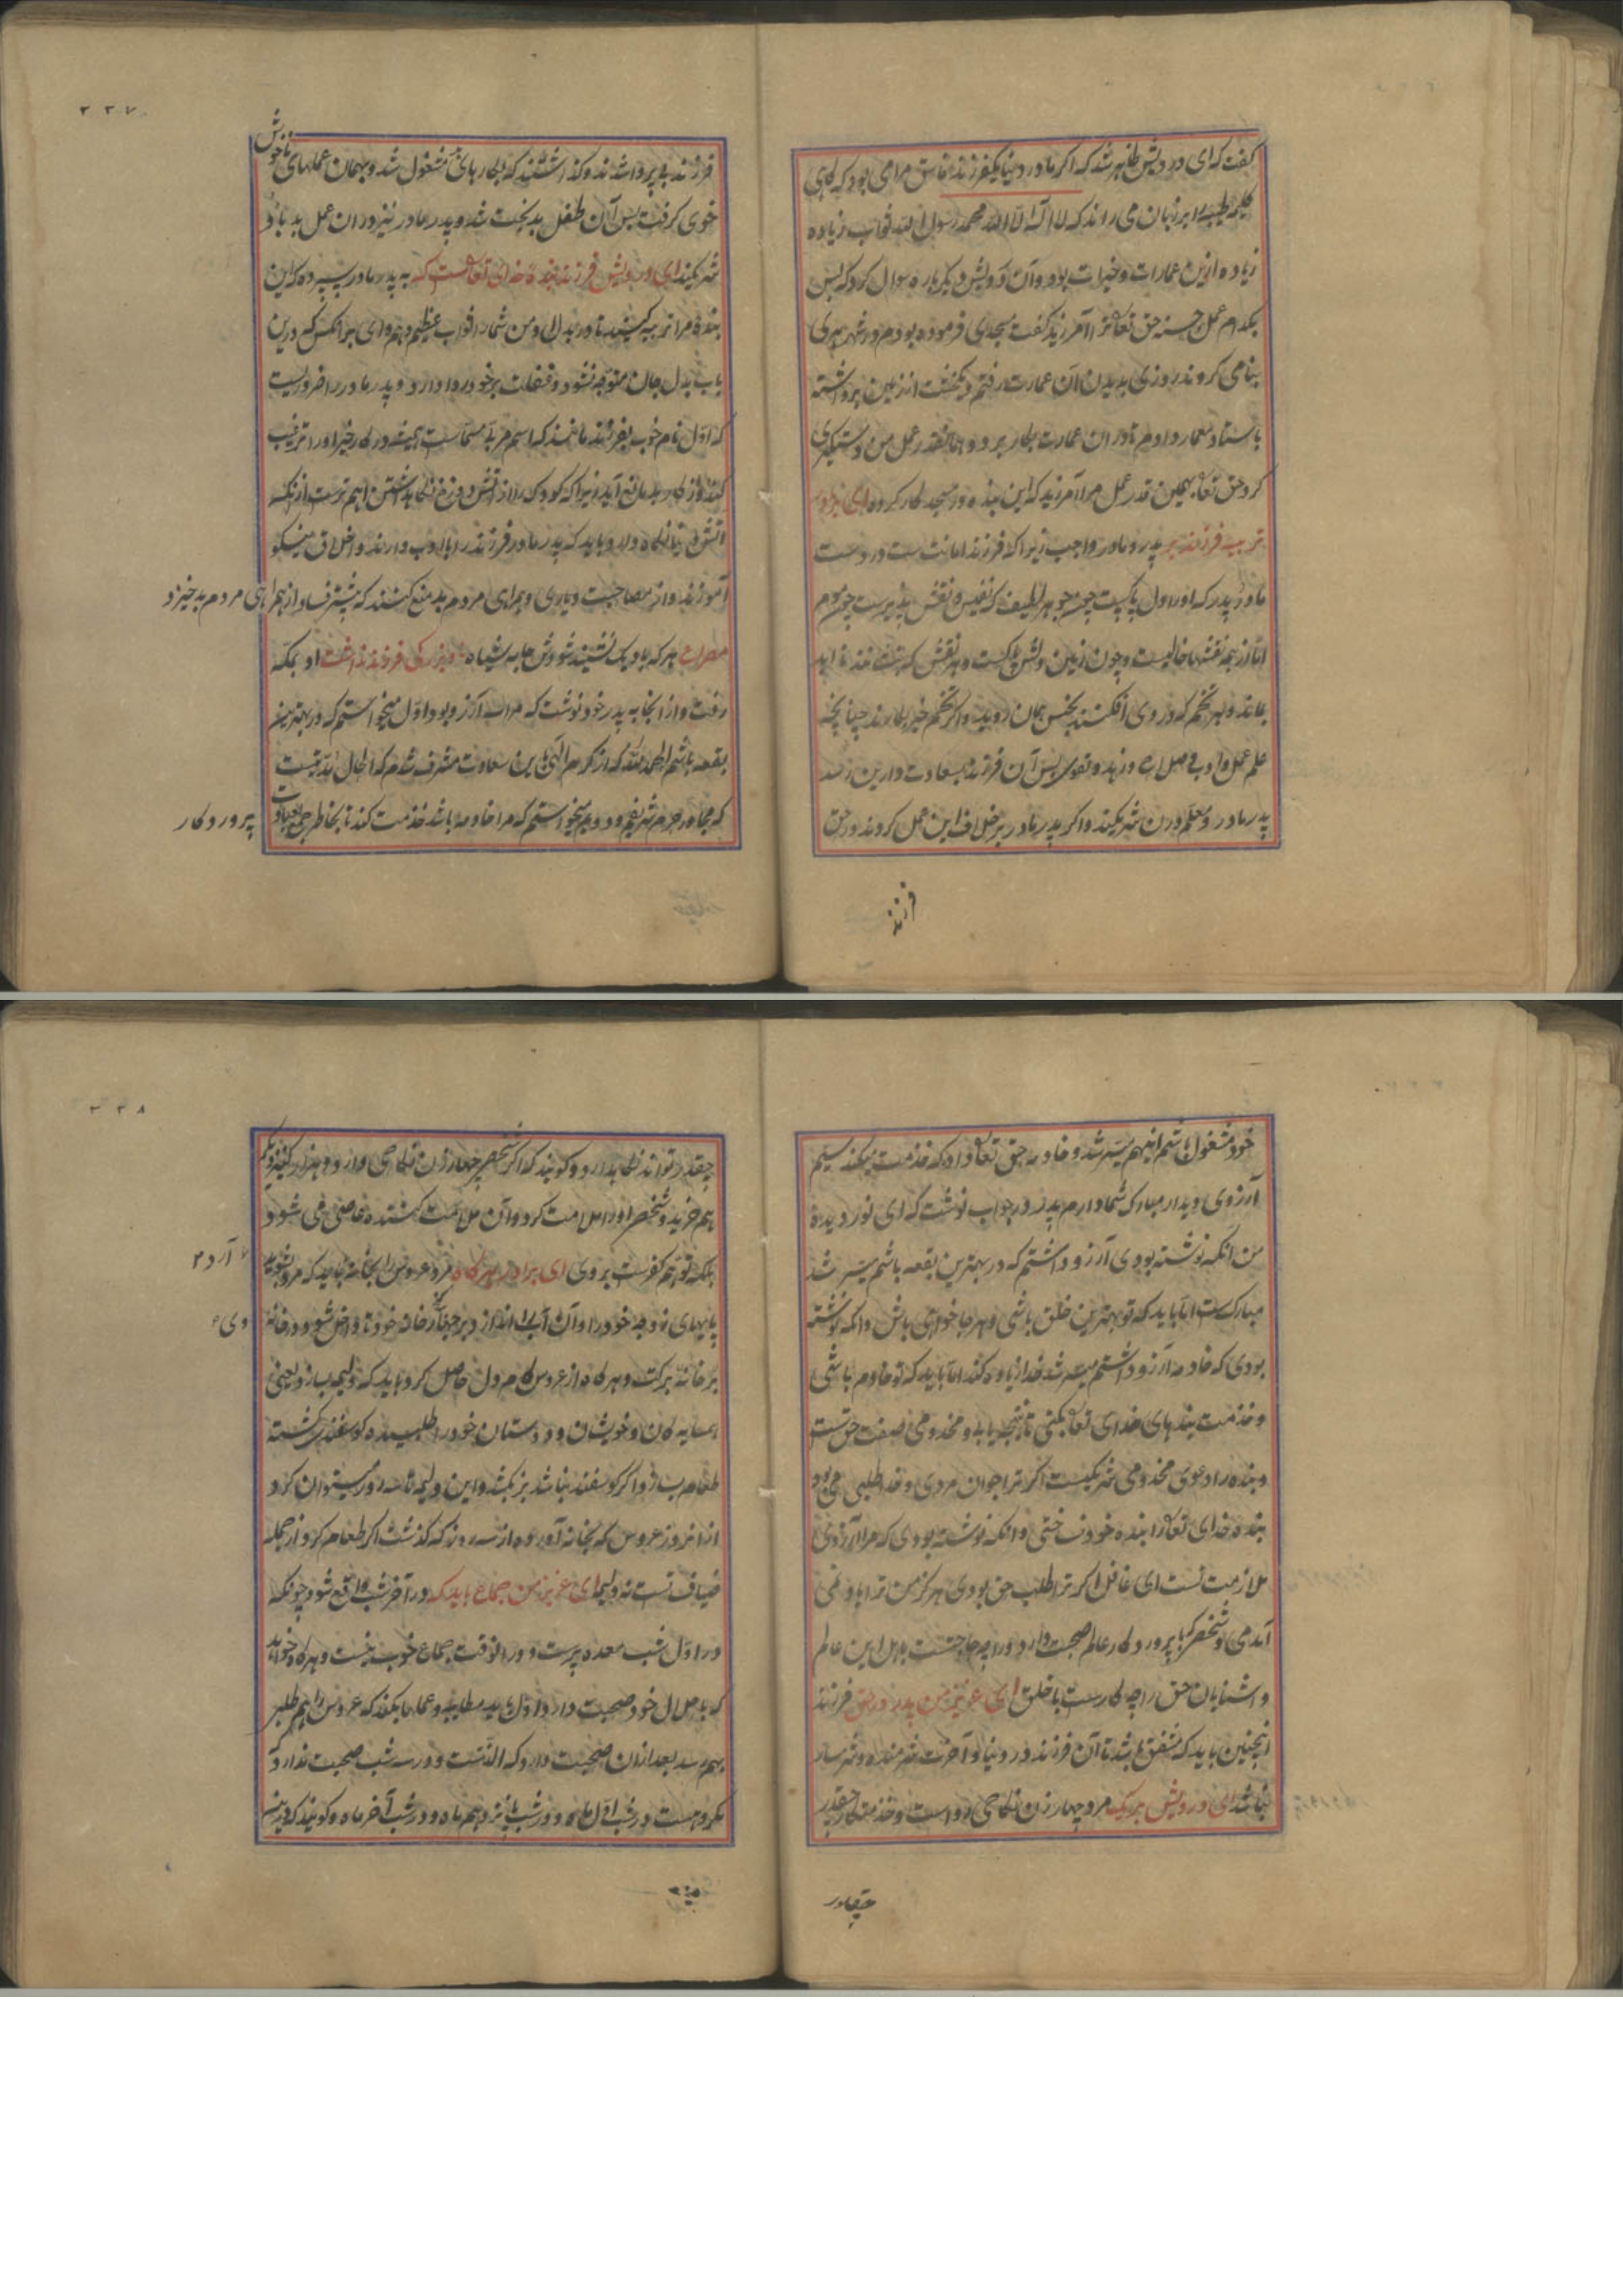 گفت که ای درویش ظاهر شد که اکر مادر دنیا یکفرزند فاسق مرامی بود که کاهی
کلمه طیبه را بر زبان می راند که لا اله الا الله محمد رسول الله ثواب زیاده
زیاده ازین عمارات و خیرات بود و آن درویش دیکر باره سوال کرد که پس
بکدام عمل حسنه حق تعالی ترا آمرزید کفت مسجدی فرموده بودم در شهر هری
بنا می کردند روزی بدیدن آن عمارت رفتم و یکخشت از زمین برداشته
باستاد معمار دادم تا در ان عمارت بکار برد و همانقدر عمل من دستکیری
کرد حق تعالی بهمین قدر عمل مرا آمرزید که این بنده در مسجد کار کرده ای برادر
تربیه فرزند بر پدر و مادر واجب زیرا که فرزند امانت ست در دست
مادر و پدر که اورا دل پاکیست چون جوهر لطیف که نفیس و نقش پذیرست چون موم
اما از همه نقشها خالیست و چون زمین دلش پاکست و هر نقش که
بماند و هر تخم که در وی افکنند بخس همان روید و اکر تخم خیر بکارند چنانچه
علم عمل و ادب و صلاح و زهد و تقوی پس آن فرزند بسعادت دارین رسد
پدر مادر و معلم در ن شریکند و اکر پدر مادر بر خلاف این عمل کردند در حق
فرزند
۲۲۷
فرزند بی پروا شدند و کذاشتند که بکارهای مشغول شد و بهمان عملهای ناخوش
خوی کرفت پس آن طفل بدبخت شد و پدر مادر نیز در ان عمل بد با و
شریکند ای درویش فرزند بنده خدای تعالی ست که به پدر مادر سپرده که این
بنده مرا تربیه کنید تا در بدل او من شمارا ثواب عظیم دهم وای بر انکس که درین
باب بدل جان متوجه نشود و غفلت بر خود روا دارد و پدر مادر را ضروریست
که اول نام خوب بفرزند ماننند که اسم مربی مسماست همیشه در کار خیر اورا ترغیب
کند و از کار بد مانع آید زیرا که کودک را از آتش دوزخ نکاهداشتن اهم ترست از نکه
آتش دنیا نکاه دارد و باید که پدر مادر فرزند را با ادب دارند و اخلاق نیکو
آموزند و از مصاحبت و یاری و همرای مردم بد منع کنند که بیشتر فساد از همراهی مردم بد خیزد
مصراع هر که با دیک نشیند شودش جامه سیاه بزرکی فرزند داشت او بمکه
رفت و از انجا به پدر خود نوشت که مراسه آرزو بود اول میخواستم که در بهترین
بقعه باشم الحمدلله که از کرم الهی باین سعادت مشرف شدم که الحال مدتیست
که مجاور حرم شریفم و دویم میخواستم که مرا خادمه باشد خدمت کند تا بخاطر جمع بعبادت پروردکار
۲۲۸
خود مشغول باشم اینهم میسر شد و خادمه حق تعالی داد که خدمت میکند سیم
آرزوی دیدار مبارک شما دارم پدر در جواب نوشت که ای نور دیدۀ
من انکه نوشته بودی آرزو داشتم که در بهترین بقعه باشم میسر شد
مبارک ست اما باید که تو بهترین خلق باشی و هر جا خواهی باش وانکه نوشته
بودی که خادمه آرزو داشتم میسر شد خدا زیاده کند اما باید که تو خادم باشی
و خدمت بندهای خدای تعالی بکنی تا نتیجه یابی و مخدومی صفت حق تست
و بنده را دعوی مخدومی شریکیست اکر ترا جوان مردی و خدا طلبی می بود
بنده خدای تعالی را بنده خود نساختی وانکه نوشته بودی که مرا آرزوی
ملازمت تست ای غافل اکر ترا طلب حق بودی هرکز من ترا یاد نمی
آمدمی و شخصی که با پروردکار عالم صحبت دارد اورا چه حاجتست باهل این عالم
و آشنایان حق را چه کارست با خلق ای عزیز من پدر در حق فرزند
اینچنین باید که مشفق باشد تا آن فرزند در دنیا و آخرت شرمنده و شرمسار
نباشد ای درویش بر یک مرد چهار زن نکاحی رواست و خدمتکار
چقدر
چقدر تواند نکاهدارد و کویند که اکر شخصی چهار زن نکاحی دارد و هزار کنیزک
هم خرید و شخصی اورا ملامت کرد و آن ملامت کننده عاصی می شود و
بلکه توهم کفرست بروی ای برادر هرکاه مرد عروس را بخانه آرد باید که مرد بشوید
پایهای زوجه خود را و آن آب را اندازد بر چهار کنج خانه خود تا داخل شود در خانه وی
بر خانه برکت و هرکاه از عروس کام دل حاصل کرد باید که ولیمه بسازد یعنی
همسایه کان و خویشان و دوستان خود را طلبیده کوسفندی کشته
طعام بسازد و اکر کوسفند نباشد بز بکشد و این ولیمه تا سه روز میتوان کرد
از انروز عروس که بخانه آورده از سه روز که کذشت اکر طعام کرد از جمله
ضیافتست نه ولیمه ای عزیز من جماع باید که در آخر شب واقع شود چونکه
در اول شب معده پرست و در انوقت جماع خوب نیست و هرکاه خواهد
که با حلال خود صحبت دارد اول باید مطایبه و عمامانکند که عروس را هم طلب
بهم رسد بعد از ان صحبت دارد که الذتست و در سه شب صحبت ندارد که
مکروهست در شب اول ماه و در شب پانزدهم ماه و در شب آخر ماه و کویند که درین